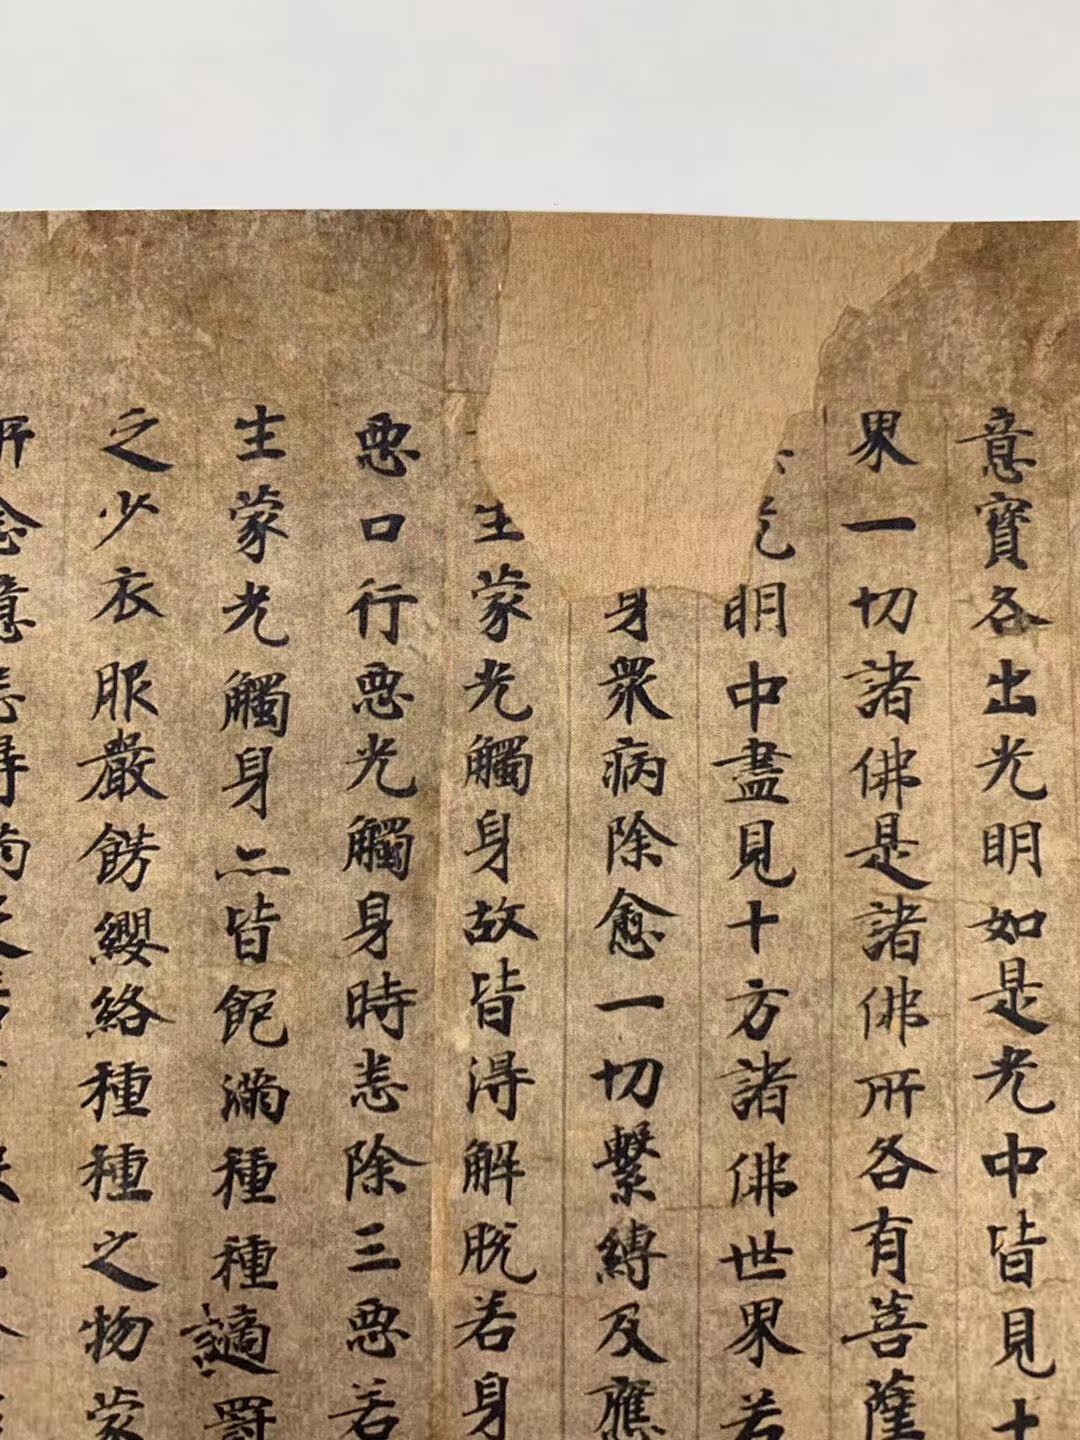 意寶各出光明如是光中皆見十
界一切諸佛是諸佛所各有菩薩
明中盡見十方諸佛世界若
身衆病除愈一切繫縛及應
生蒙光觸身故皆得解脫若身
惡口行惡光觸身時恙除三惡若
生蒙光觸身亦皆飽滿種種讁罸
之少衣服嚴餝纓絡種種之物蒙
所念意恙得